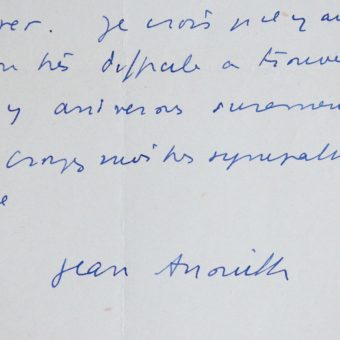 rer. Je crois qu'il y au
très difficile à trouve
y arriverons suremen
Croyez moi très sympath
e
Jean Anouilh